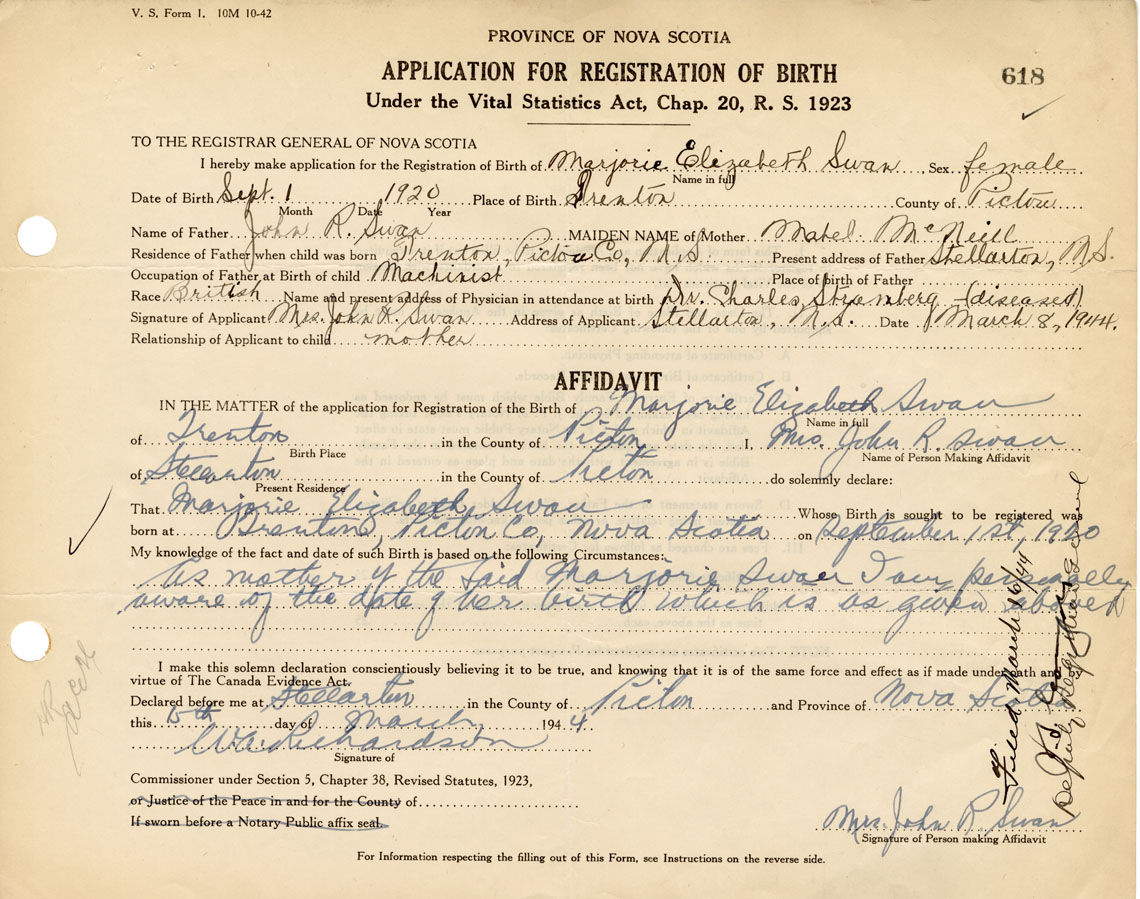 V. S. Form 1. 10M 10-42
PROVINCE OF NOVA SCOTIA
APPLICATION FOR REGISTRATION OF BIRTH
618
Under the Vital Statistics Act, Chap. 20, R. S. 1923
TO THE REGISTRAR GENERAL OF NOVA SCOTIA
I hereby make application for the Registration of Birth of Marjorie Elizabeth Swan, Sex female
Name in full
Date of Birth Sept. 1 1920 Place of Birth Trenton County of Pictou
Month Date Year
Name of Father John R. Swan MAIDEN NAME of Mother Mabel McNeill
Residence of Father when child was born Trenton, Pictou Co, N.S. Present address of Father Stellarton, N.S.
Occupation of Father at Birth of child Machinist Place of birth of Father
Race British Name and present address of Physician in attendance at birth Dr. Charles (diseased)
Signature of Applicant Mrs. John R. Swan Address of Applicant Stellarton, N.S. Date March 8, 1944.
Relationship of Applicant to child mother
AFFIDAVIT
IN THE MATTER of the application for Registration of the Birth of Marjorie Elizabeth Swan
Name in full
of Trenton in the County of Picton I, Mrs. John R. Swan
Birth Place Name of Person Making Affidavit
of Stellarton in the County of Picton do solemnly declare:
Present Residence
That Marjorie Elizabeth Swan Whose Birth is sought to be registered was
born at Trenton, Picton Co, Nova Scotia on September 1st, 1920
My knowledge of the fact and date of such Birth is based on the following Circumstances:
As mother of the said Marjorie Swan I am personally
aware of the date of her birth which is as given above
I make this solemn declaration conscientiously believing it to be true, and knowing that it is of the same force and effect as if made under oath and by
virtue of The Canada Evidence Act.
Declared before me at Stellarton in the County of Picton and Province of Nova Scotia
this day of March 1944
W.A. Richardson
Signature of
Commissioner under Section 5, Chapter 38, Revised Statutes, 1923,
or Justice of the Peace in and for the County of
If sworn before a Notary Public affix seal.
Mrs. John R. Swan
Signature of Person making Affidavit
For Information respecting the filling out of this Form, see Instructions on the reverse side.
Filed March 16/44
Deputy Registrar General